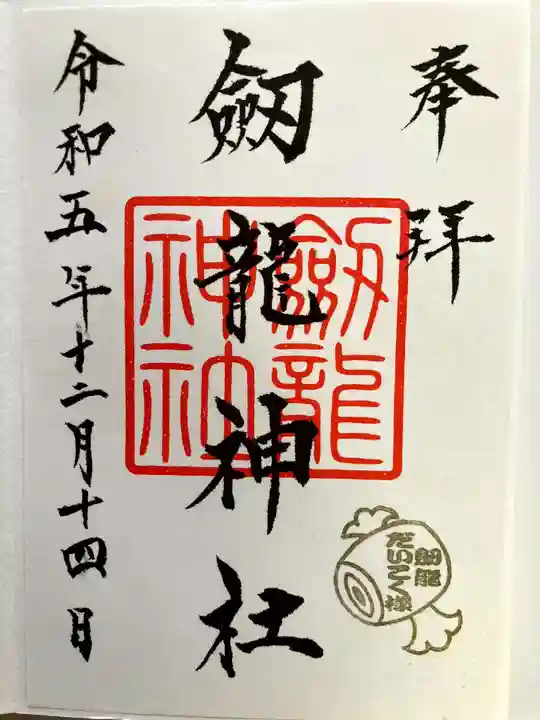 奉拜
劔龍神社
劔龍
神社
劔龍
だいこく様
令和五年十二月十四日